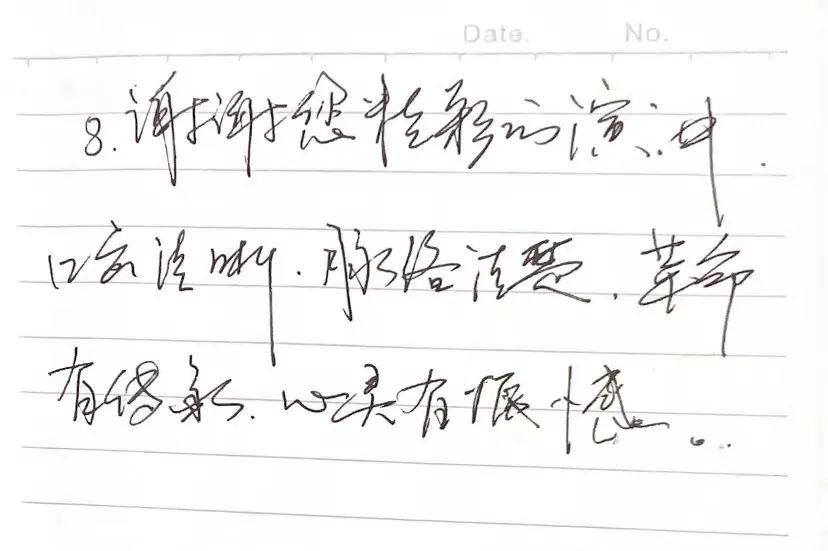 Date. No.
8.谢谢您精彩的演讲.
口齿清晰.脉络清楚.革命
有传承.心灵有震撼。